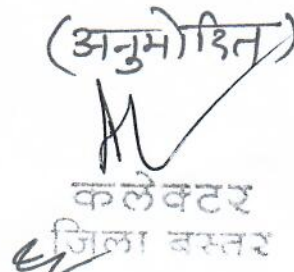 (अनुमोदित)
कलेक्टर
जिला बस्तर